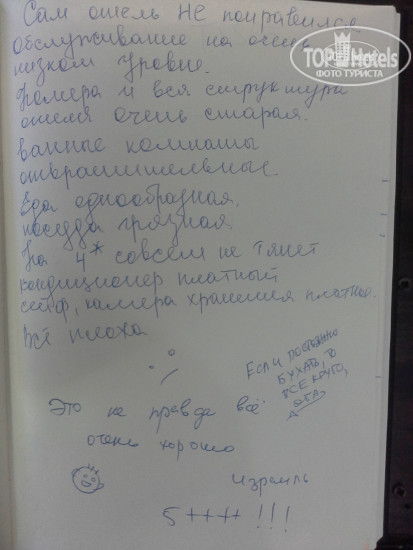 Сам отель НЕ понравился
TOP Hotels
ФОТО ТУРИСТА
обслуживание на очень
низком уровне.
Номера и вся структура
отеля очень старая.
ванные комнаты
отвратительные.
Еда однообразная,
посуда грязная.
На 4* совсем не тянет
кондиционер платный
сейф, камера хранения платное.
Всё плохо
ЕСЛИ ПОСТОЯННО
БУХАТЬ, ТО
ВСЕ КРУТО,
Это не правда всё
очень хорошо
Израиль
5++++ !!!